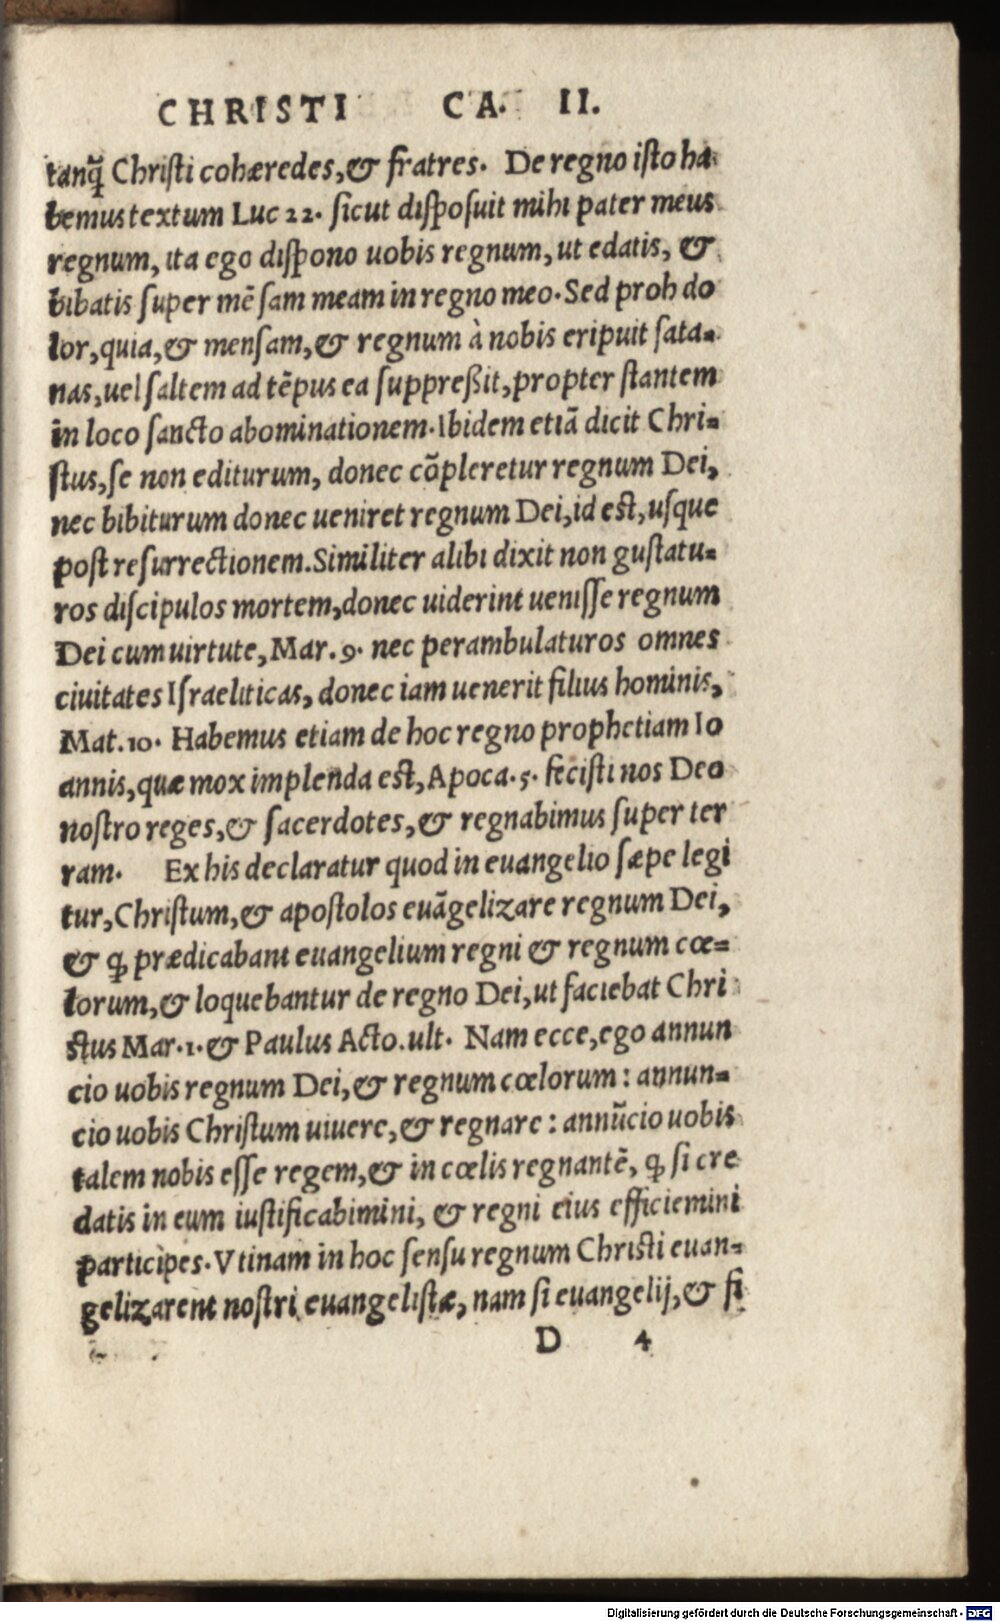 CHRISTI CA. II.
tanq̃ Christi cohæredes,& fratres. De regno isto ha-
bemus textum Luc 22. sicut disposuit mihi pater meus
regnum, ita ego dispono uobis regnum, ut edatis, &
bibatis super mēsam meam in regno meo. Sed proh do
lor,quia,& mensam,& regnum à nobis eripuit sata-
nas,uel saltem ad tēpus ea suppreßit,propter stantem
in loco sancto abominationem. Ibidem etiā dicit Chri-
stus,se non editurum, donec cōpleretur regnum Dei,
nec bibiturum donec ueniret regnum Dei,id est,usque
post resurrectionem. Similiter alibi dixit non gustatu-
ros discipulos mortem,donec uiderint uenisse regnum
Dei cum uirtute, Mar. 9. nec perambulaturos omnes
ciuitates Israeliticas, donec iam uenerit filius hominis,
Mat. 10. Habemus etiam de hoc regno prophetiam Io
annis,quæ mox implenda est, Apoca. 5. fecisti nos Deo
nostro reges,& sacerdotes,& regnabimus super ter
ram. Ex his declaratur quod in euangelio sæpe legi
tur,Christum,& apostolos euāgelizare regnum Dei,
& ꝙ prædicabant euangelium regni & regnum cœ-
lorum,& loquebantur de regno Dei,ut faciebat Chri
stus Mar. 1. & Paulus Acto. ult. Nam ecce,ego annun
cio uobis regnum Dei,& regnum cœlorum: annun-
cio uobis Christum uiuere,& regnare: annũcio uobis
talem nobis esse regem,& in cœlis regnantē, ꝙ si cre
datis in eum iustificabimini, & regni eius efficiemini
participes. Vtinam in hoc sensu regnum Christi euan-
gelizarent nostri euangelistæ, nam si euangelij,& fi
D 4
Digitalisierung gefördert durch die Deutsche Forschungsgemeinschaft - DFG